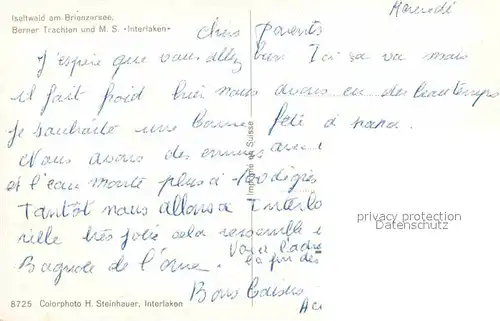 Iseltwald am Brienzersee,
Berner Trachten und M. S. «Interlaken»
Mercredi
chers Parents
J'espère que vous allez bien Ici sa va mais
il fait froid hier nous avons eu du beau temps
Je souhaite une bonne fête à papa.
Nous avons des ennuis avec l
et l'eau monte plus à 100 degrés
Tantôt nous allons a Interla
ville très jolie cela ressemble
Bagnole de l'Orne. Voir l'adre
la fin des
Bons Baisers
Imprimé en Suisse
privacy protection
Datenschutz
8725 Colorphoto H. Steinhauer, Interlaken